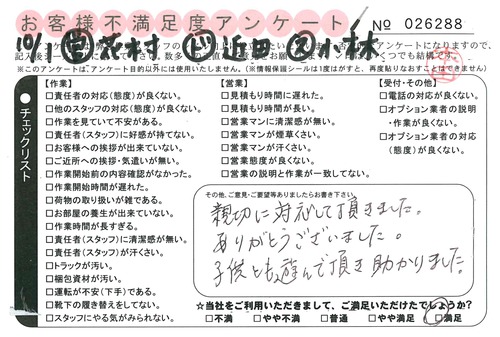 お客様不満足度アンケート
No 026288
10/1 茂村 ド 近田 ス 小林
※このアンケートは、アンケート目的以外には使用いたしません。(※情報保護シールは1度はがすと、再度貼りなおすことはできません)
チェックリスト
【作業】
□責任者の対応(態度)が良くない。
□他のスタッフの対応(態度)が良くない。
□作業を見ていて不安がある。
□責任者(スタッフ)に好感が持てない。
□お客様への挨拶が出来ていない。
□ご近所への挨拶・気遣いが無い。
□作業開始前の内容確認がなかった。
□作業開始時間が遅れた。
□荷物の取り扱いが雑である。
□お部屋の養生が出来ていない。
□作業時間が長すぎる。
□責任者(スタッフ)に清潔感が無い。
□責任者(スタッフ)が汗くさい。
□トラックが汚い。
□梱包資材が汚い。
□運転が不安(下手)である。
□靴下の履き替えをしてない。
□スタッフにやる気がみられない。
【営業】
□見積もり時間に遅れた。
□見積もり時間が長い。
□営業マンに清潔感が無い。
□営業マンが煙草くさい。
□営業マンが汗くさい。
□営業態度が良くない。
□営業の説明と作業が一致してない。
【受付・その他】
□電話の対応が良くない。
□オプション業者の説明
・作業が良くない。
□オプション業者の対応
(態度)が良くない。
その他、ご意見・ご要望等ありましたらお書き下さい。
親切に対応して頂きました。
ありがとうございました。
子供とも遊んで頂き助かりました。
☆当社をご利用いただきまして、ご満足いただけたでしょうか?
□不満 □やや不満 □普通 □やや満足 □満足